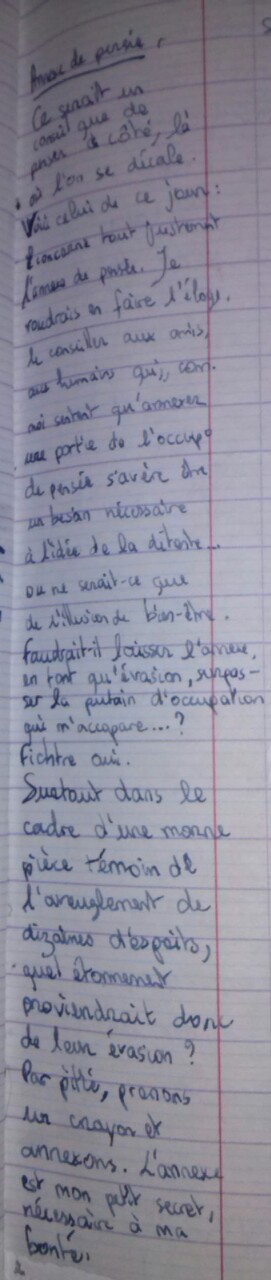 Annexe de pensée.
Ce serait un
conseil que de
penser à côté, là
où l'on se décale.
Voici celui de ce jour :
concerne tout justement
l'annexe de pensée. Je
voudrais en faire l'éloge,
le conseiller aux amis,
aux humains qui, com-
sentent qu'annexer
une partie de l'occup°
de pensée s'avère être
un besoin nécessaire
à l'idée de la détente...
ou ne serait-ce que
de l'illusion de bien-être.
Faudrait-il laisser l'annexe,
en tant qu'évasion, surpas-
ser la putain d'occupation
qui m'accapare...?
Fichtre oui.
Surtout dans le
cadre d'une morne
pièce témoin de
l'aveuglement de
dizaines d'esprits,
quel étonnement
proviendrait donc
de leur évasion ?
Par pitié, prenons
un crayon et
annexons. L'annexe
est mon petit secret,
nécessaire à ma
bonté.